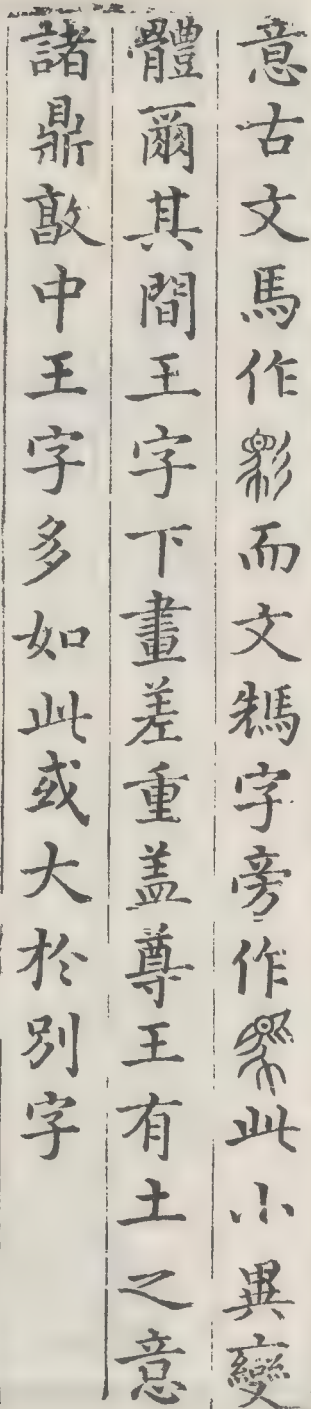 意古文馬作而文𩧢字旁作此小異變
體爾其間王字下畫差重盖尊王有土之意
諸鼎敦中王字多如此或大於別字